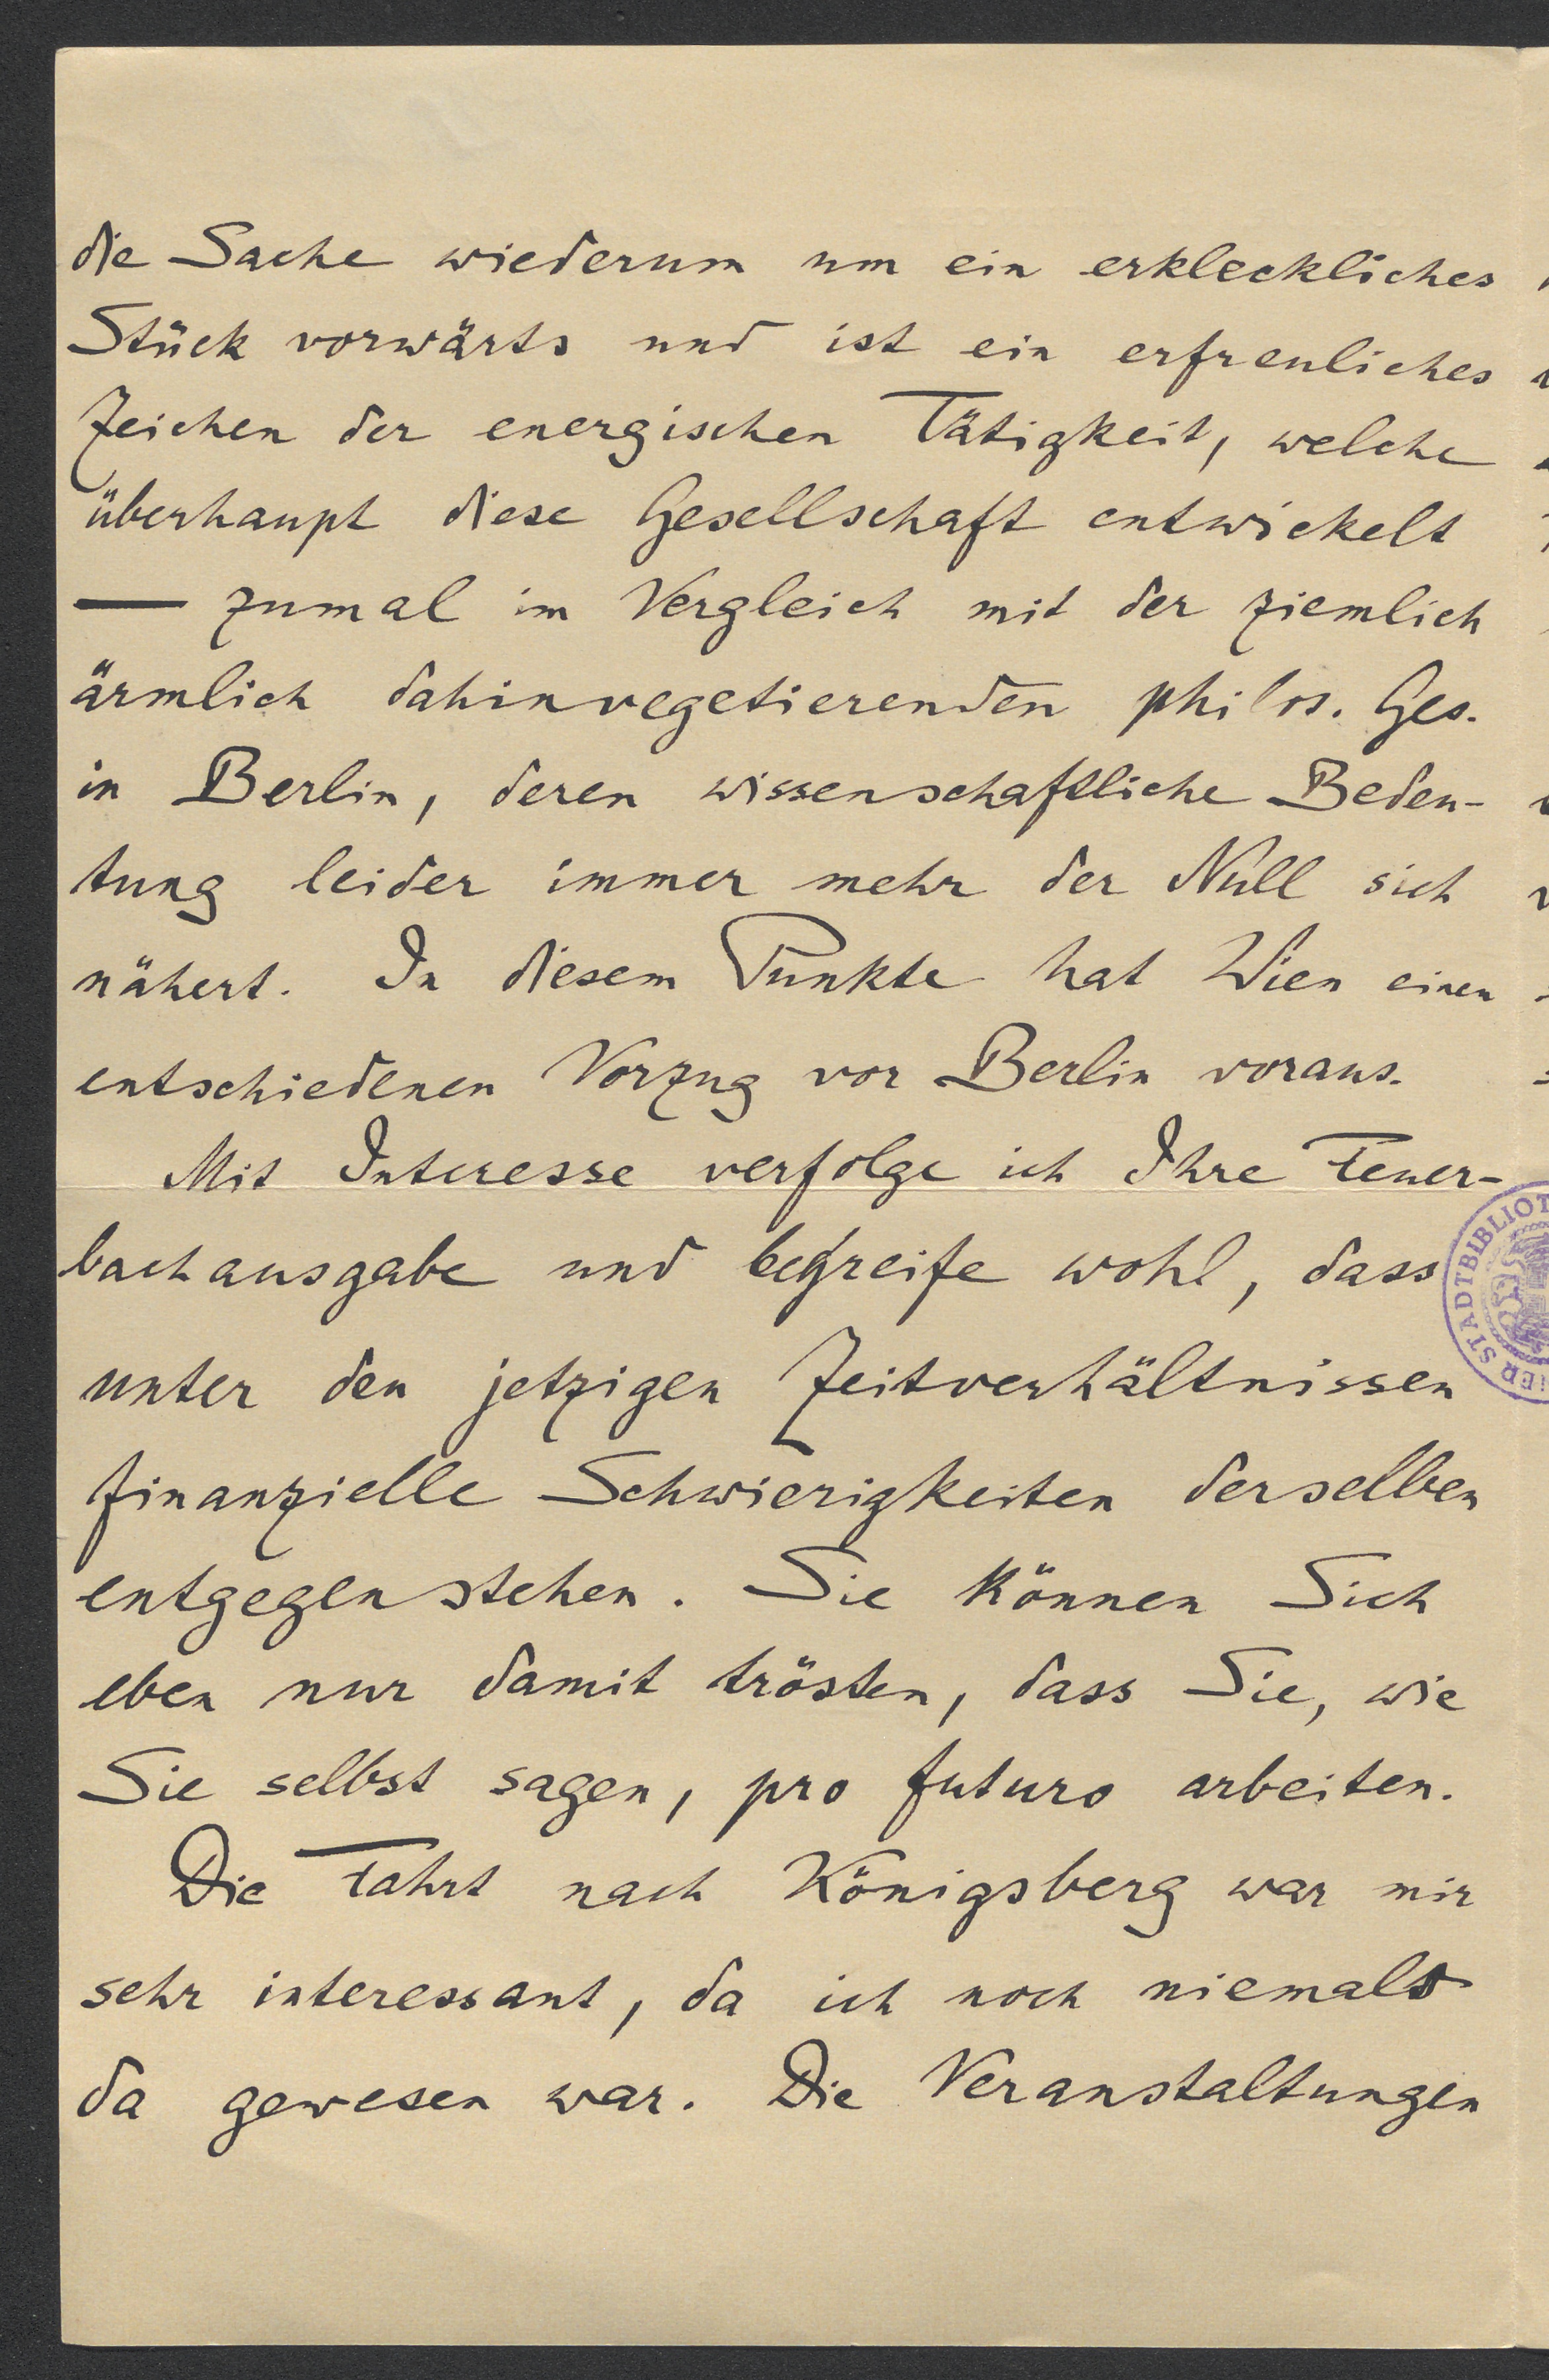 die Sache wiederum um ein erkleckliches
Stück vorwärts und ist ein erfreuliches
Zeichen der energischen Tätigkeit, welche
überhaupt diese Gesellschaft entwickelt
— zumal im Vergleich mit der ziemlich
ärmlich dahinvegetierenden philos. Ges.
in Berlin, deren wissenschaftliche Bedeu-
tung leider immer mehr der Null sich
nähert. In diesem Punkte hat Wien einen
entschiedenen Vorzug vor Berlin voraus.
Mit Interesse verfolge ich Ihre Feuer-
bachausgabe und begreife wohl, dass
unter den jetzigen Zeitverhältnissen
finanzielle Schwierigkeiten derselben
entgegenstehen. Sie können Sich
eben nur damit trösten, dass Sie, wie
Sie selbst sagen, pro futuro arbeiten.
Die Fahrt nach Königsberg war mir
sehr interessant, da ich noch niemals
da gewesen war. Die Veranstaltungen